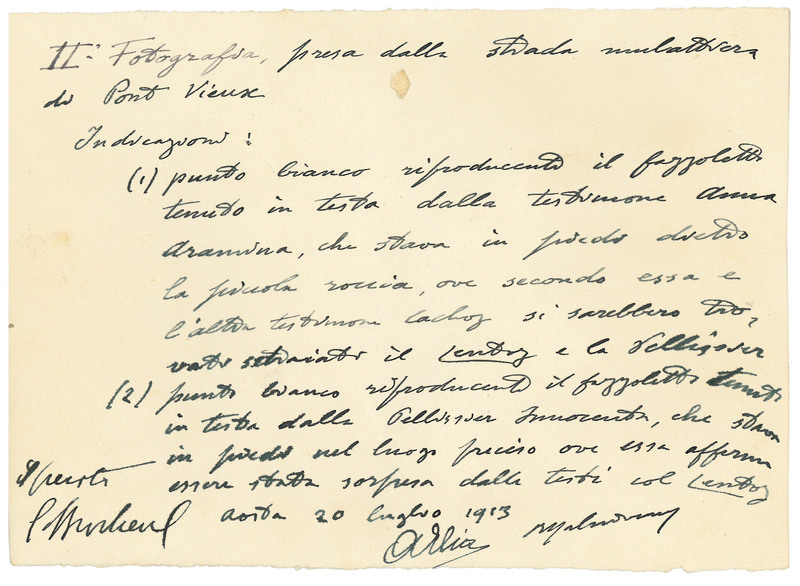 IIª Fotografia, presa dalla strada mulattiera
di Pont Vieux
Indicazioni:
(1) punto bianco riproducente il fazzoletto
tenuto in testa dalla testimone Anna
Aramina, che stava in piedi dietro
la piccola roccia, ove secondo essa e
l'altra testimone Cachoz si sarebbero tro-
vati sdraiati il Lentoz e la Pellissier
(2) punto bianco riproducente il fazzoletto tenuto
in testa dalla Pellissier Innocenta, che stava
in piedi nel luogo preciso ove essa afferma
essere stata sorpresa dalle testi col Lentoz
Aosta 20 luglio 1913
I periti